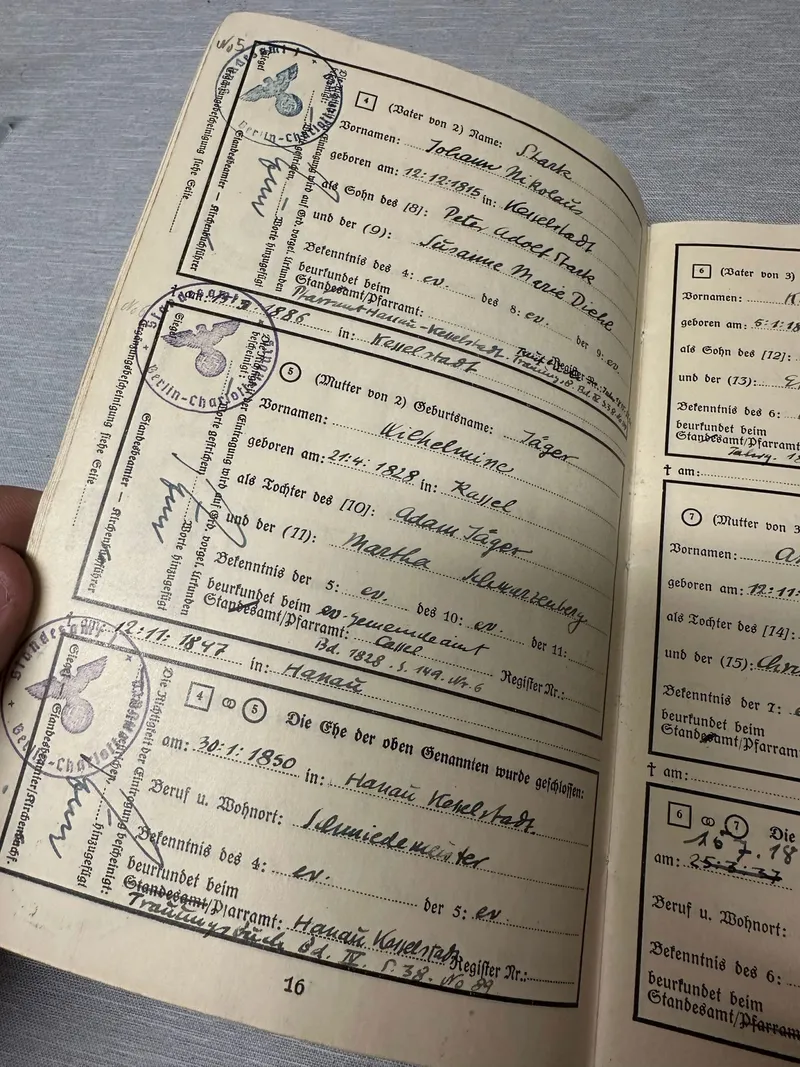 No 5
4 (Vater von 2) Name: Stark
Vornamen: Johann Nikolaus
geboren am: 12.12.1815 in: Kesselstadt
als Sohn des [8]: Peter Adolf Stark
und der (9): Susanne Marie Diehl
Bekenntnis des 4: ev. des 8: ev. der 9: ev.
beurkundet beim
Standesamt/Pfarramt:
Pfarramt Hanau-Kesselstadt.
† am: 1886 in: Kesselstadt
Siegel
Standesbeamter — Kirchenbuchführer
Ergänzungsbescheinigung siehe Seite
Standesamt
Berlin-Charlott
5 (Mutter von 2) Geburtsname: Jäger
Vornamen: Wilhelmine
geboren am: 21.4.1828 in: Kassel
als Tochter des [10]: Adam Jäger
und der (11): Martha Schwarzenberg
Bekenntnis der 5: ev. des 10: ev. der 11:
beurkundet beim ev. Gemeindeamt
Standesamt/Pfarramt: Cassel
Bd. 1828 S. 149. Nr. 6 Register Nr.:
† am: 12.11.1847 in: Hanau
Siegel
Standesbeamter — Kirchenbuchführer
Ergänzungsbescheinigung siehe Seite
Standesamt
Berlin-Charlott
4 ⚭ 5 Die Ehe der oben Genannten wurde geschlossen:
am: 30.1.1850 in: Hanau Kesselstadt
Beruf u. Wohnort: Schmiedemeister
Bekenntnis des 4: ev. der 5: ev.
beurkundet beim
Standesamt/Pfarramt: Hanau Kesselstadt Register Nr.:
Trauungsbuch Bd. IV. S. 38. No 89
Die Richtigkeit der Eintragung bescheinigt:
Siegel
Standesamt
Berlin-Charlott
16
6 (Vater von 3)
Vornamen:
geboren am: 5.1.18
als Sohn des [12]:
und der (13):
Bekenntnis des 6:
beurkundet beim
Standesamt/Pfarramt
† am:
7 (Mutter von 3
Vornamen:
geboren am: 12.11.
als Tochter des [14]:
und der (15):
Bekenntnis der 7:
beurkundet beim
Standesamt/Pfarramt
† am:
6 ⚭ 7 Die
16.7.18
am: 25.7.37
Beruf u. Wohnort:
Bekenntnis des 6:
beurkundet beim
Standesamt/Pfarram